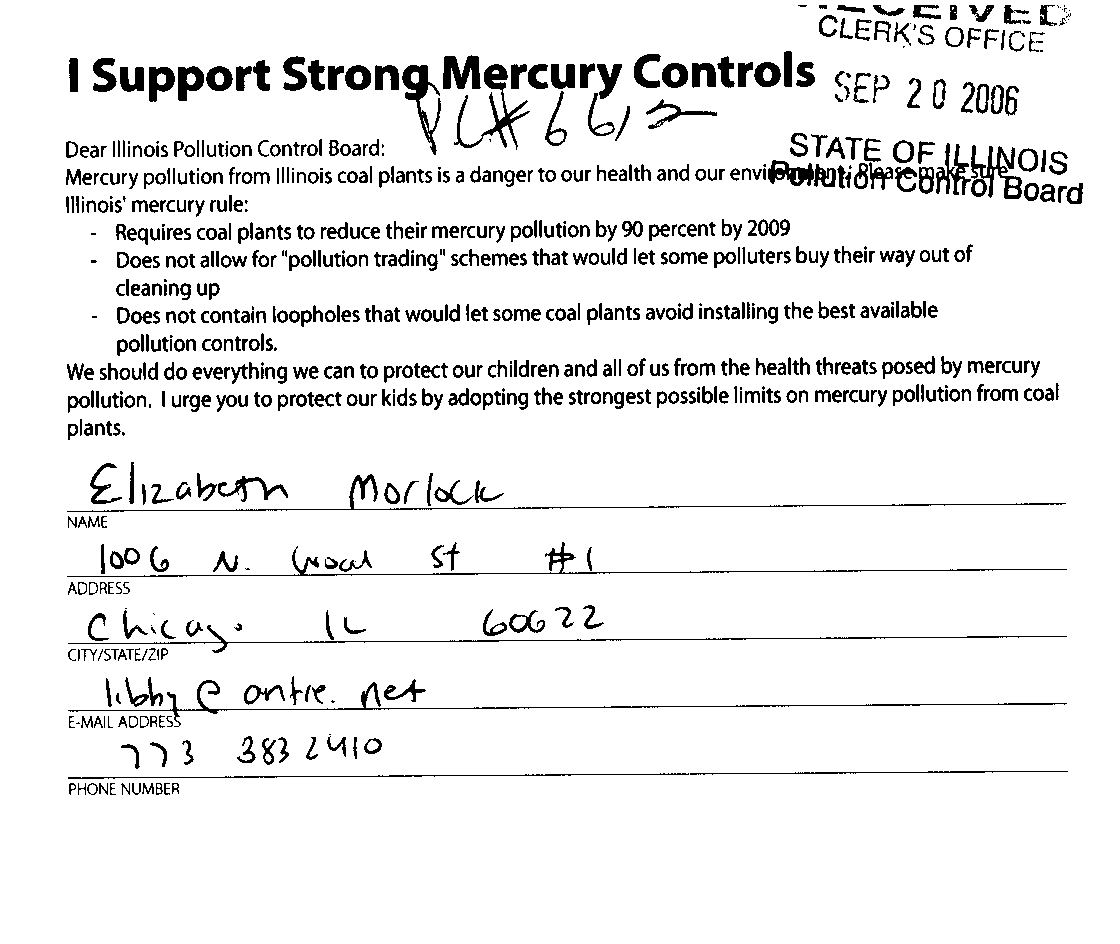 RECEIVED
CLERK'S OFFICE
I Support Strong Mercury Controls
SEP 20 2006
PC# 6612
STATE OF ILLINOIS
Pollution Control Board
Dear Illinois Pollution Control Board:
Mercury pollution from Illinois coal plants is a danger to our health and our environment. Please make sure
Illinois' mercury rule:
- Requires coal plants to reduce their mercury pollution by 90 percent by 2009
- Does not allow for "pollution trading" schemes that would let some polluters buy their way out of
cleaning up
- Does not contain loopholes that would let some coal plants avoid installing the best available
pollution controls.
We should do everything we can to protect our children and all of us from the health threats posed by mercury
pollution. I urge you to protect our kids by adopting the strongest possible limits on mercury pollution from coal
plants.
Elizabeth Morlock
NAME
1006 N. St #1
ADDRESS
Chicago IL 60622
CITY/STATE/ZIP
E-MAIL ADDRESS
773 383 2410
PHONE NUMBER